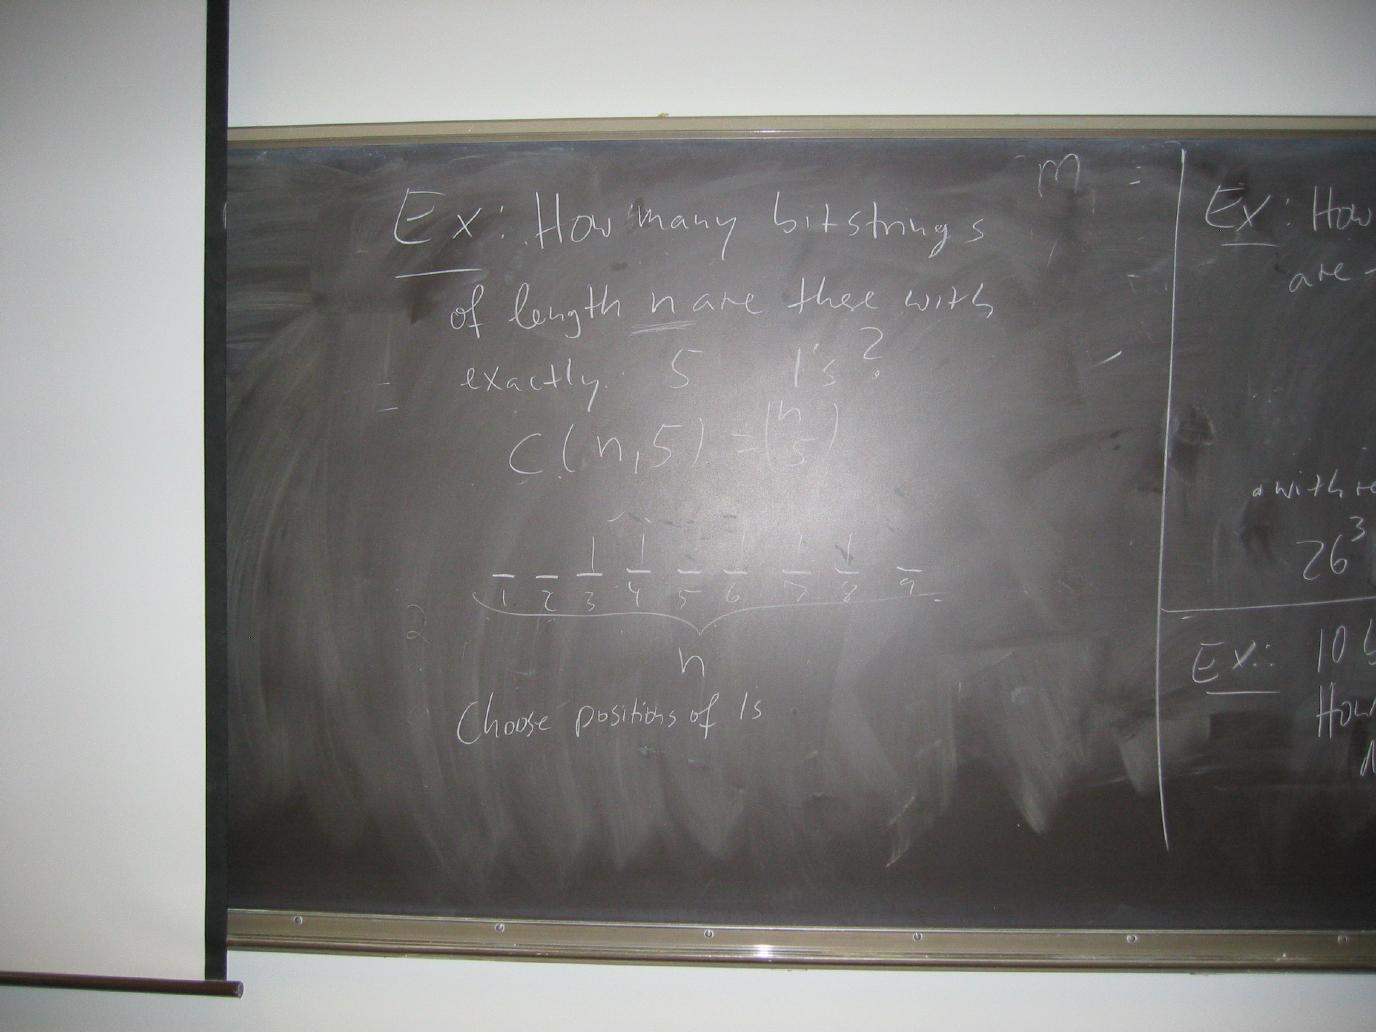 Ex: How many bitstrings
of length n are there with
exactly 5 1's?
C(n,5) = (n 5)
1 1 1 1 1
1 2 3 4 5 6 7 8 9
n
Choose positions of 1s
m
Ex: How
are
with re
26^3
Ex: 10
How